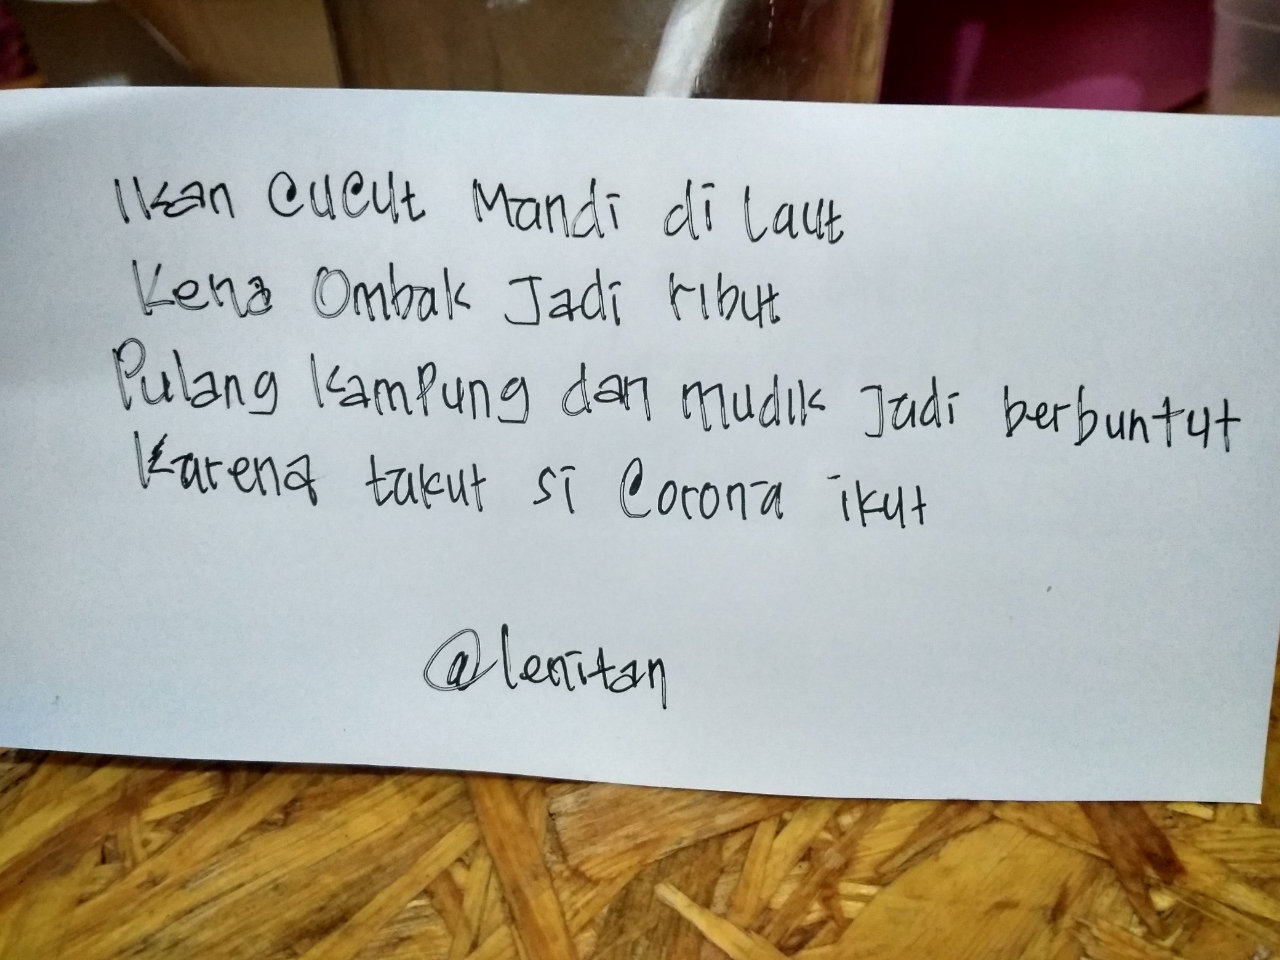 Ikan Cucut Mandi di Laut
Kena Ombak Jadi ribut
Pulang Kampung dan mudik Jadi berbuntut
Karena takut si Corona ikut
@lenitan